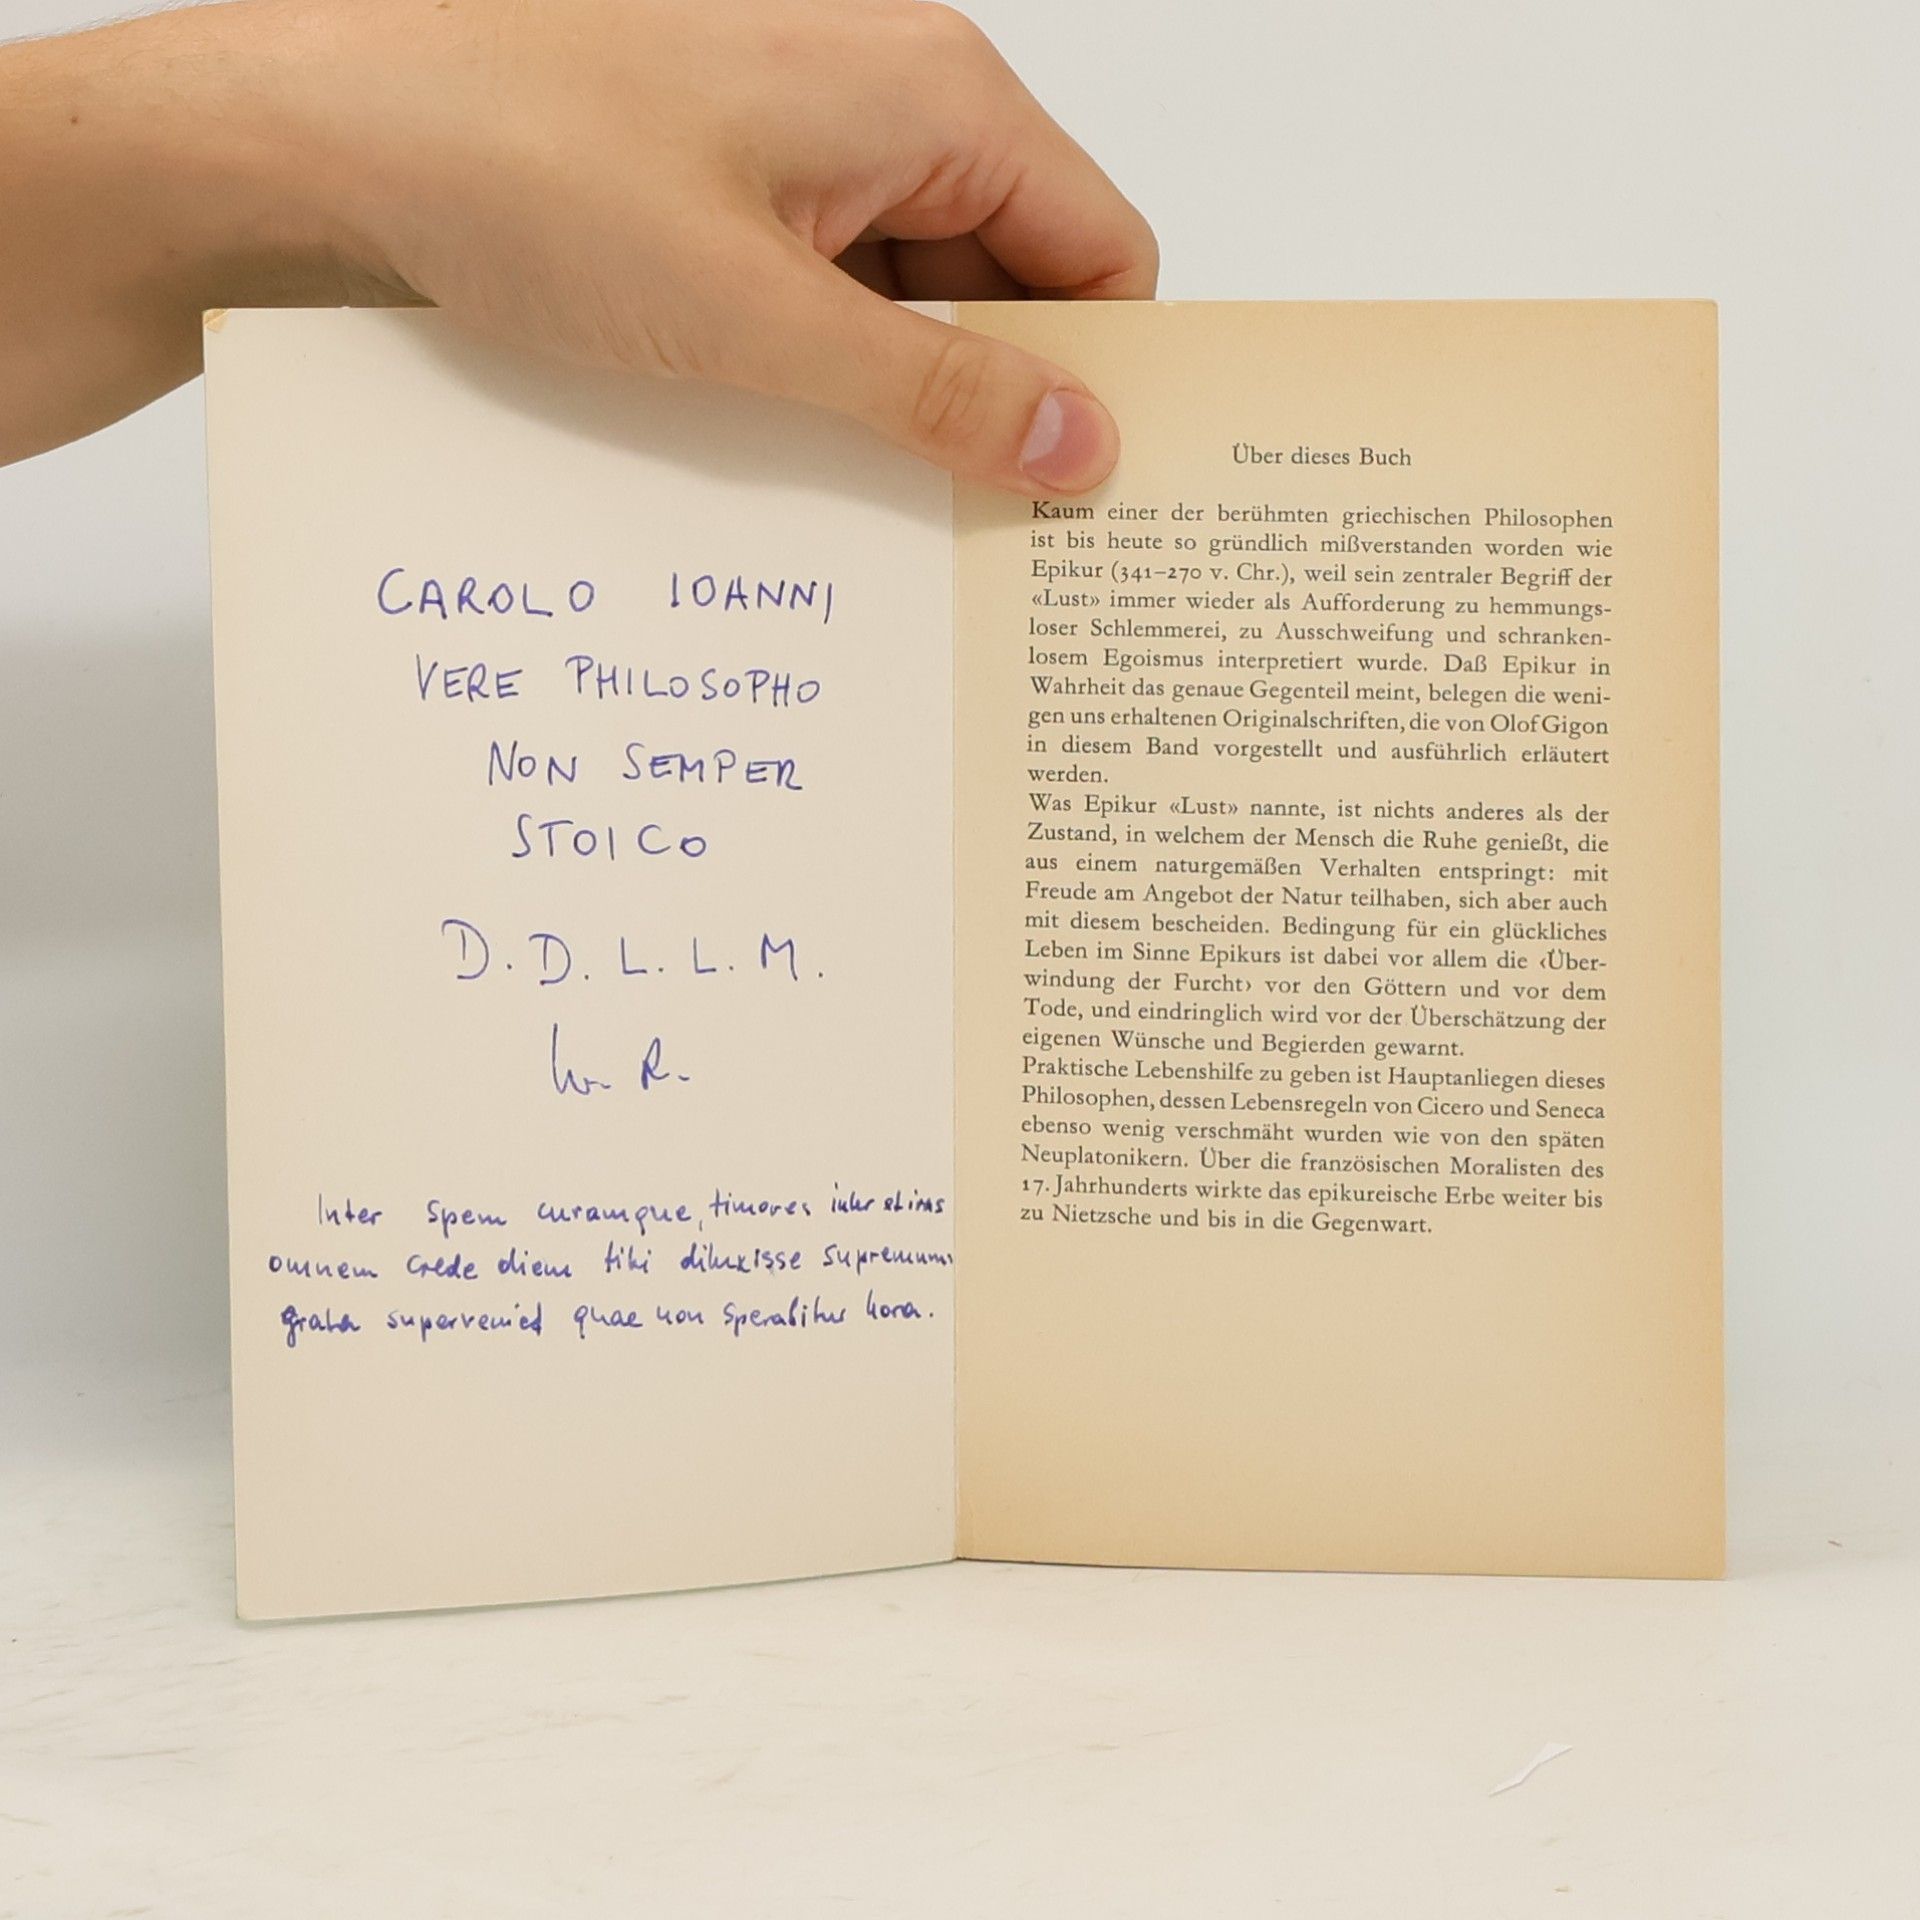 CAROLO IOANNI
VERE PHILOSOPHO
NON SEMPER
STOICO
D. D. L. L. M.
R.
Inter spem curamque, timores inter et iras
omnem crede diem tibi diluxisse supremum:
grata superveniet quae non sperabitur hora.
Über dieses Buch
Kaum einer der berühmten griechischen Philosophen
ist bis heute so gründlich mißverstanden worden wie
Epikur (341–270 v. Chr.), weil sein zentraler Begriff der
«Lust» immer wieder als Aufforderung zu hemmungs-
loser Schlemmerei, zu Ausschweifung und schranken-
losem Egoismus interpretiert wurde. Daß Epikur in
Wahrheit das genaue Gegenteil meint, belegen die weni-
gen uns erhaltenen Originalschriften, die von Olof Gigon
in diesem Band vorgestellt und ausführlich erläutert
werden.
Was Epikur «Lust» nannte, ist nichts anderes als der
Zustand, in welchem der Mensch die Ruhe genießt, die
aus einem naturgemäßen Verhalten entspringt: mit
Freude am Angebot der Natur teilhaben, sich aber auch
mit diesem bescheiden. Bedingung für ein glückliches
Leben im Sinne Epikurs ist dabei vor allem die ‹Über-
windung der Furcht› vor den Göttern und vor dem
Tode, und eindringlich wird vor der Überschätzung der
eigenen Wünsche und Begierden gewarnt.
Praktische Lebenshilfe zu geben ist Hauptanliegen dieses
Philosophen, dessen Lebensregeln von Cicero und Seneca
ebenso wenig verschmäht wurden wie von den späten
Neuplatonikern. Über die französischen Moralisten des
17. Jahrhunderts wirkte das epikureische Erbe weiter bis
zu Nietzsche und bis in die Gegenwart.